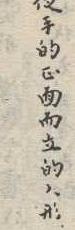 手的正面而立的人形